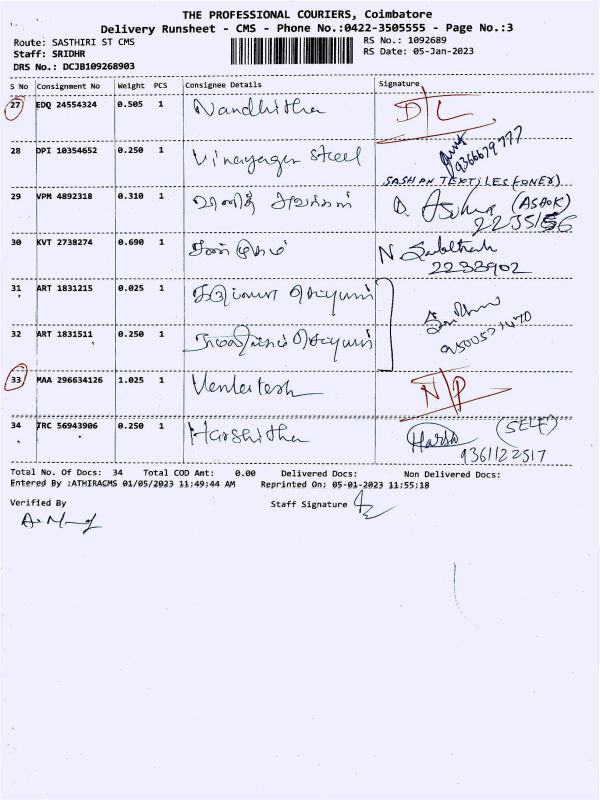 THE PROFESSIONAL COURIERS, Coimbatore
Delivery Runsheet - CMS - Phone No.:0422-3505555 - Page No.:3
Route: SASTHIRI ST CMS
RS No.: 1092689
Staff: SRIDHR
RS Date: 05-Jan-2023
DRS No.: DCJB109268903
S No Consignment No Weight PCS Consignee Details Signature
27 EDQ 24554324 0.505 1 Nandhitha D/L
28 DPI 10354652 0.250 1 Vinayagar Steel 9366679777
SASHAN TEXTILES (ONEX)
29 VPM 4892318 0.310 1 (ASHOK)
30 KVT 2738274 0.690 1 சண்முகம் N.
2238902
31 ART 1831215 0.025 1
32 ART 1831511 0.250 1
33 MAA 296634126 1.025 1 Venkatesh N/P
34 TRC 56943906 0.250 1 Harshitha Harsh (SELF)
9361122517
Total No. Of Docs: 34 Total COD Amt: 0.00 Delivered Docs: Non Delivered Docs:
Entered By ;ATHIRACMS 01/05/2023 11:49:44 AM Reprinted On; 05-01-2023 11:55:18
Verified By Staff Signature